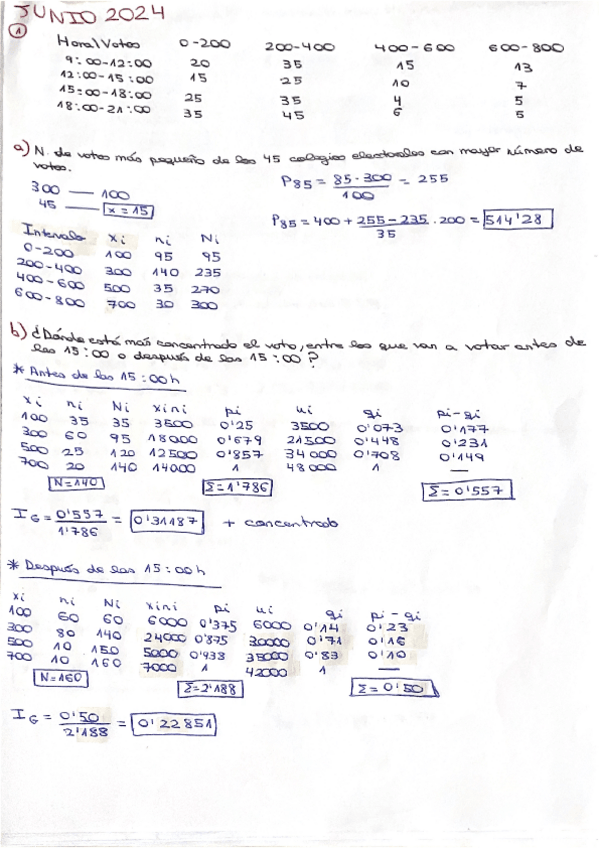 JUNIO 2024
①
Hora/Votos 0-200 200-400 400-600 600-800
9:00-12:00 20 35 15 13
12:00-15:00 15 25 10 7
15:00-18:00 25 35 4 5
18:00-21:00 35 45 6 5
a) N. de votos más pequeño de los 45 colegios electorales con mayor número de
votos.
300 — 100
45 — x=15
P85 = 85·300/100 = 255
P85 = 400 + 255-235/35 · 200 = 514'28
Intervalo xi ni Ni
0-200 100 95 95
200-400 300 140 235
400-600 500 35 270
600-800 700 30 300
b) ¿Dónde está más concentrado el voto, entre los que van a votar antes de
las 15:00 o después de las 15:00?
* Antes de las 15:00h
xi ni Ni xini pi ui qi pi-qi
100 35 35 3500 0'25 3500 0'073 0'177
300 60 95 18000 0'679 21500 0'448 0'231
500 25 120 12500 0'857 34000 0'708 0'149
700 20 140 14000 1 48000 1 —
N=140 Σ=1'786 Σ=0'557
IG = 0'557/1'786 = 0'31187 + concentrado
* Después de las 15:00h
xi ni Ni xini pi ui qi pi-qi
100 60 60 6000 0'375 6000 0'14 0'23
300 80 140 24000 0'875 30000 0'71 0'16
500 10 150 5000 0'938 35000 0'83 0'10
700 10 160 7000 1 42000 1 —
N=160 Σ=2'188 Σ=0'50
IG = 0'50/2'188 = 0'22851